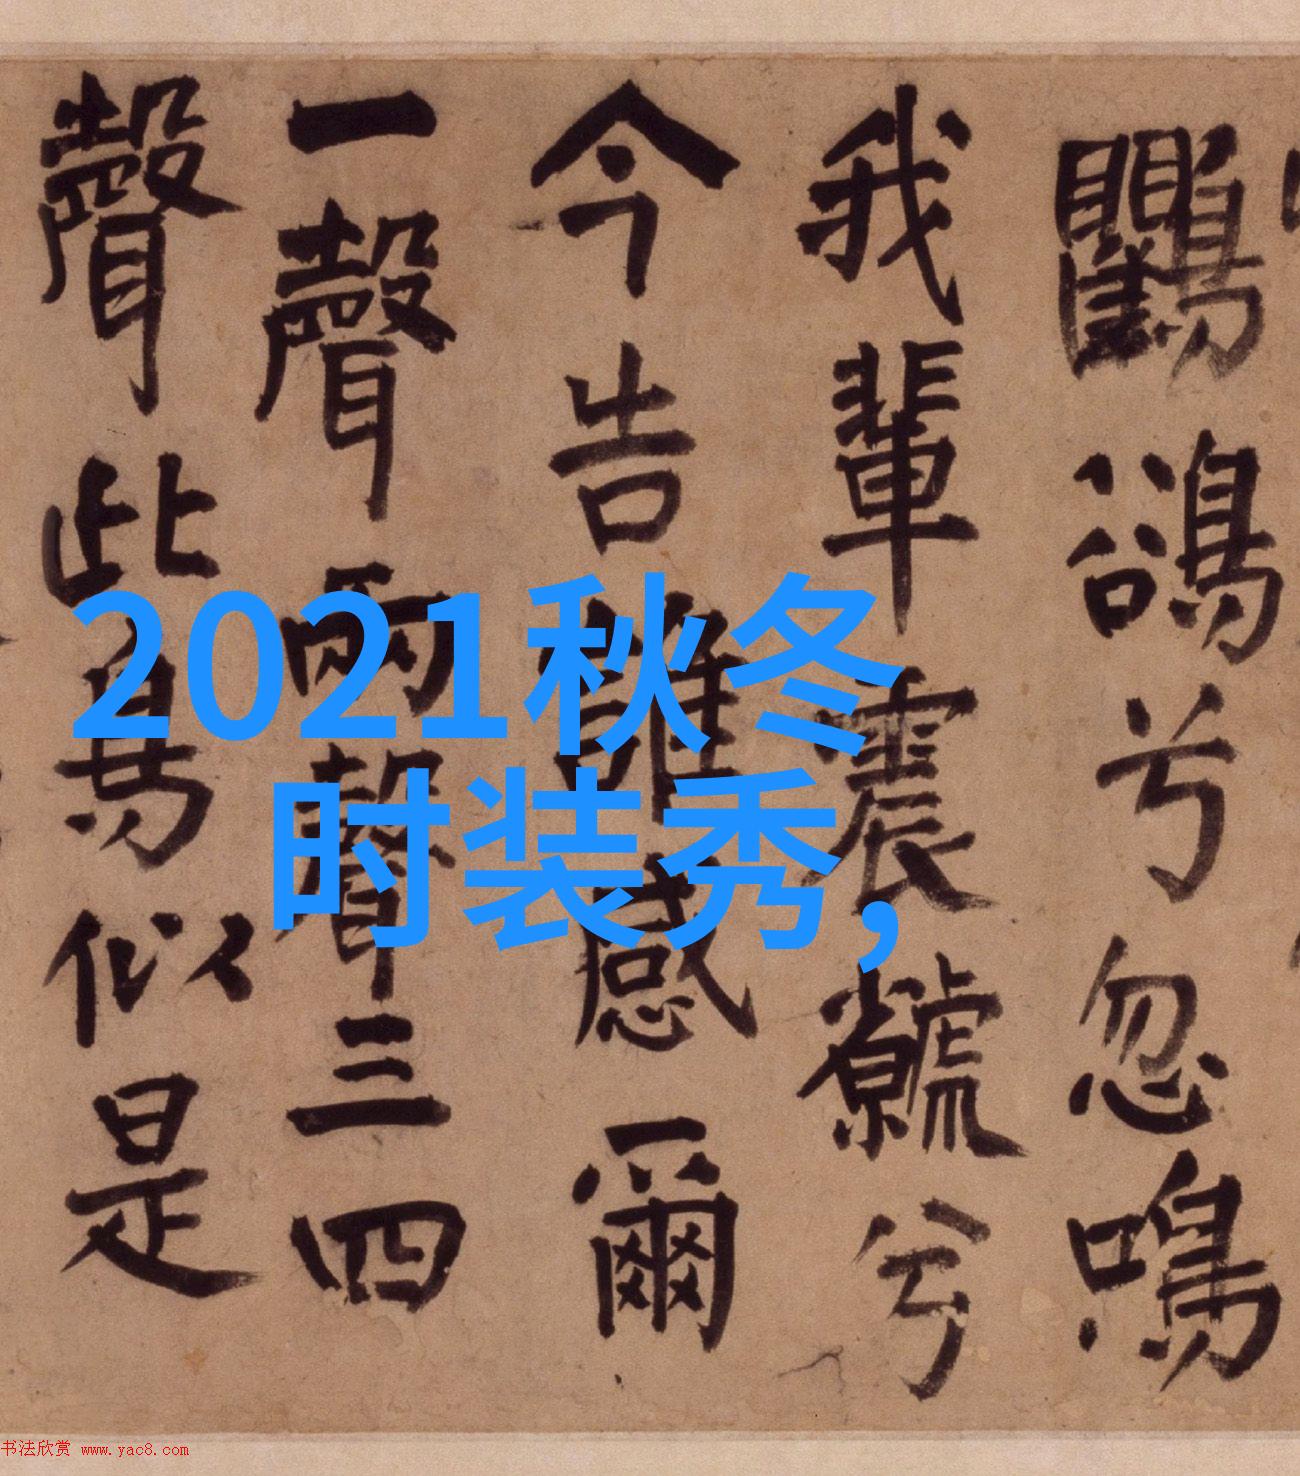 鸜鵒兮忽鳴
我輩震虩兮
今告誰感爾
一聲兩聲三四
聲此易似是
2021秋冬
时装秀,
书法欣赏 www.yac8.com